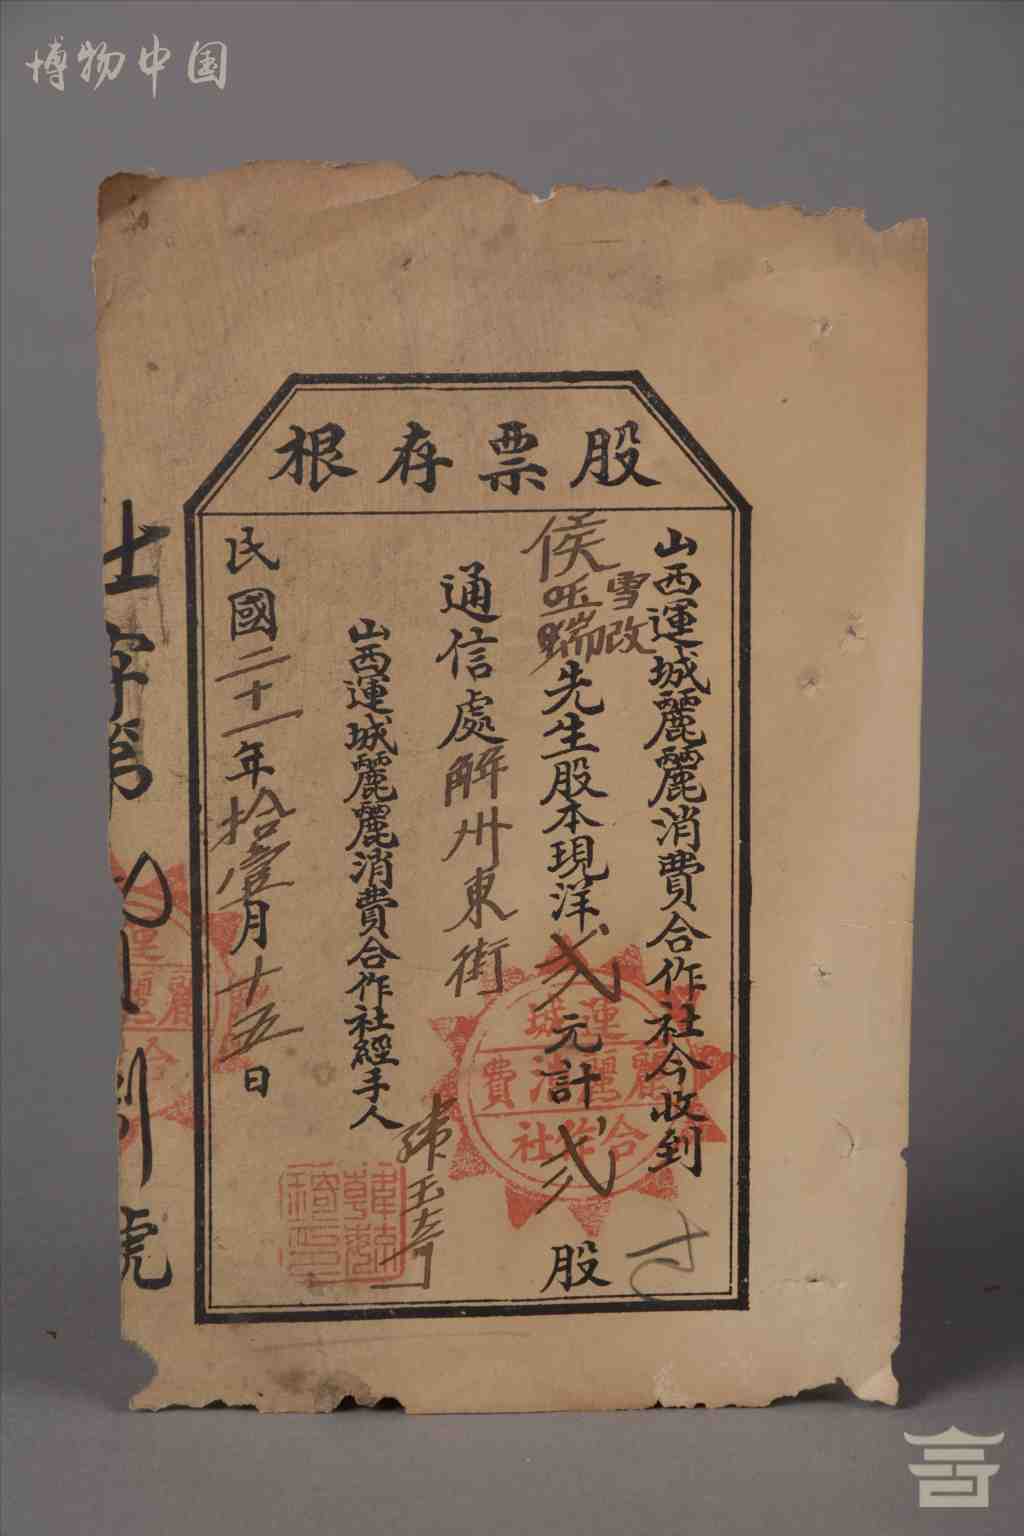 博物中国
股票存根
山西運城麗麗消費合作社今收到
侯
雪改
先生股本現洋貳元計貳股
通信處解州東街
山西運城麗麗消費合作社經手人
玉奇
民國二十一年拾壹月十五日
字第
號
運城
麗麗消費
合作社